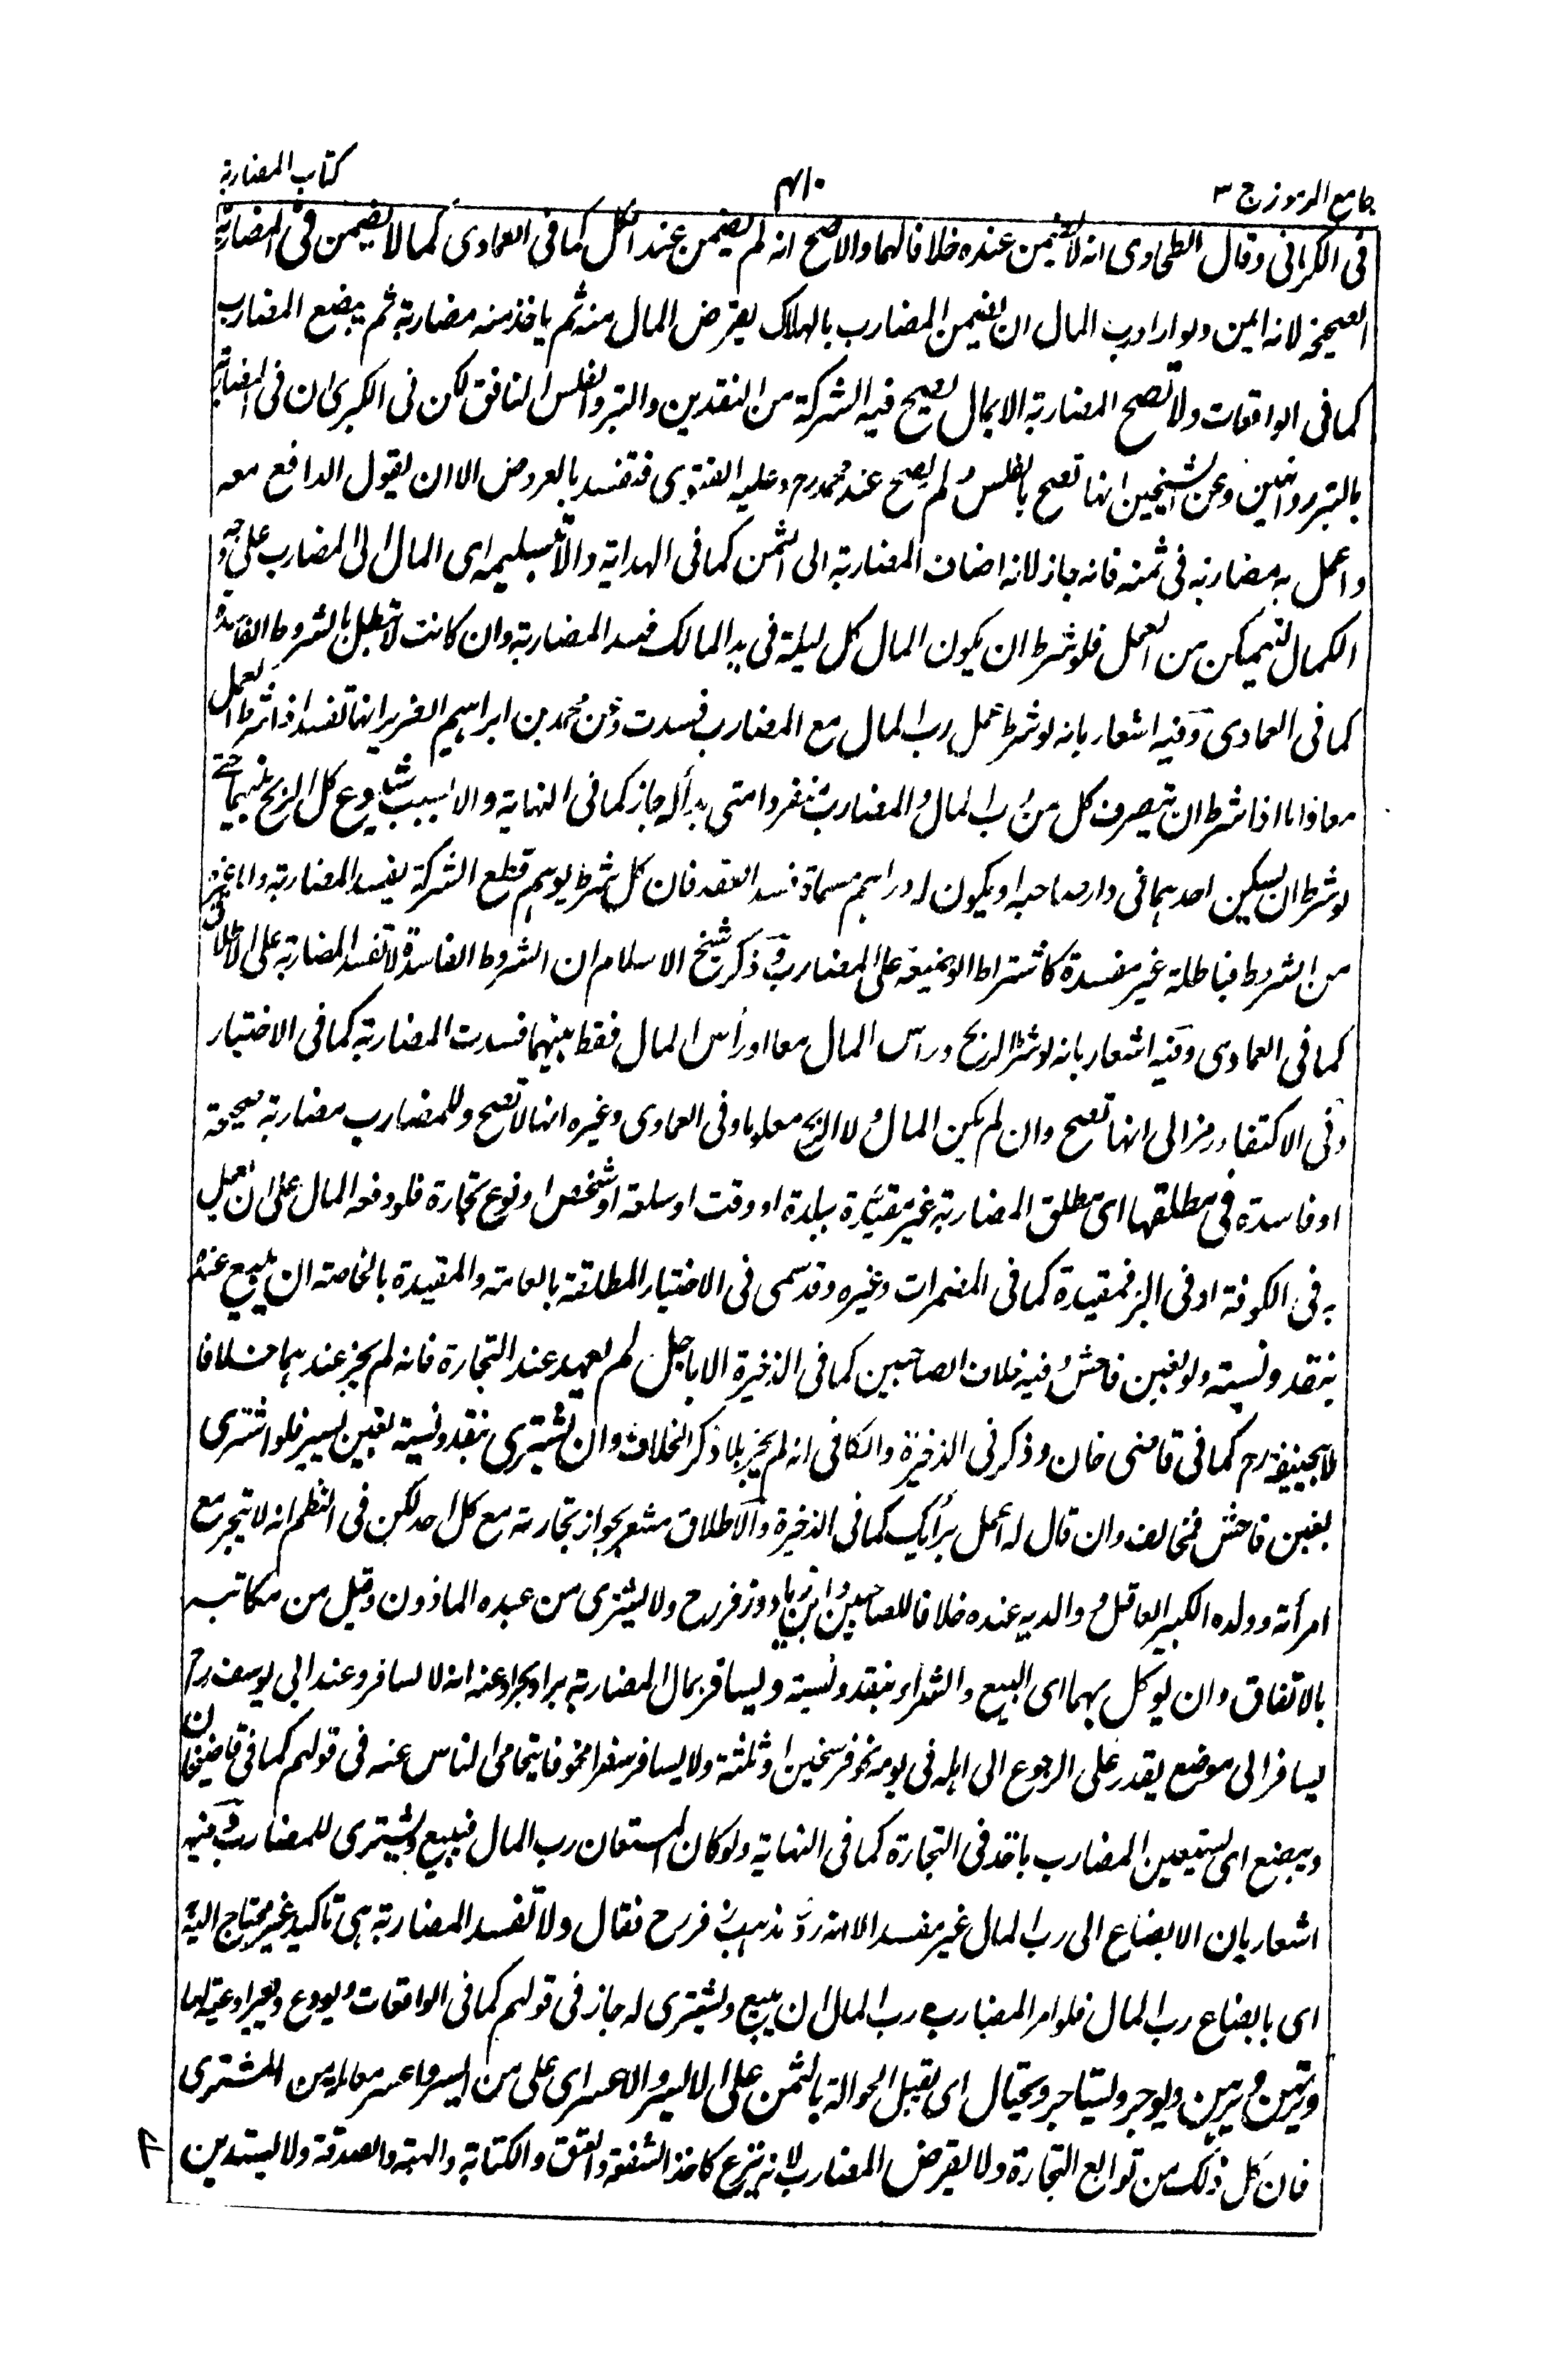 جامع الرموز ج ٣
٤١٠
كتاب المضاربة
فى الكرمانى وقال الطحاوى انه لا يضمن عنده خلافا لهما والاصح انه لم يضمن عند الكل كما فى العمادى كما لا يضمن فى المضاربة
الصحيحة لانه امين ولو اراد رب المال ان يضمن المضارب بالهلاك يقرض المال منه ثم ياخذ منه مضاربة ثم يبضع المضارب
كما فى الواقعات ولا تصح المضاربة الا بمال يصح فيه الشركة من النقدين والتبر والفلس النافق لكن فى الكبرى ان فى المضاربة
بالتبر روايتين وعن الشيخين انها تصح بالفلس ولم يصح عند محمد رح وعليه الفتوى فتفسد بالعروض الا ان يقول الدافع معه
واعمل به مضاربة فى ثمنه فانه جاز لانه اضاف المضاربة الى الثمن كما فى الهداية والا بتسليمه اى المال الى المضارب على وجه
الكمال ليتمكن من العمل فلو شرط ان يكون المال كل ليلة فى يد المالك فسد المضاربة وان كانت لا تبطل بالشروط الفاسدة
كما فى العمادى وفيه اشعار بانه لو شرط عمل رب المال مع المضارب فسدت وعن محمد بن ابراهيم الضرير انها تفسد اذا شرط العمل
معا واما اذا شرط ان يتصرف كل من رب المال والمضارب منفردا متى بدأ له جاز كما فى النهاية والا بسبب شيوع كل الربح بينهما حتى
لو شرط ان يسكن احدهما فى دار صاحبه او يكون له دراهم مسماة فسد العقد فان كل شرط يوهم قطع الشركة يفسد المضاربة واما غيره
من الشروط فباطلة غير مفسدة كاشتراط الوضيعة على المضارب وذكر شيخ الاسلام ان الشروط الفاسدة لا تفسد المضاربة على الاطلاق
كما فى العمادى وفيه اشعار بانه لو شرط الربح وراس المال معا او رأس المال فقط بينهما فسدت المضاربة كما فى الاختيار
وفى الاكتفاء رمز الى انها تصح وان لم يكن المال ولا الربح معلوما وفى العمادى وغيره انها لا تصح وللمضارب مضاربة صحيحة
او فاسدة فى مطلقها اى مطلق المضاربة غير مقيدة ببلدة او وقت او سلعة او شخص او نوع تجارة فلو دفعه المال على ان يعمل
به فى الكوفة او فى البز فمقيدة كما فى المضمرات وغيره وقد سمى فى الاختيار المطلقة بالعامة والمقيدة بالخاصة ان يبيع عنده
بنقد ونسية ولو بغبن فاحش وفيه خلاف الصاحبين كما فى الذخيرة الا باجل لم يعهد عند التجارة فانه لم يجز عندهما خلافا
لابيحنيفة رح كما فى قاضى خان وذكر فى الذخيرة والكافى انه لم يجز بلا ذكر الخلاف وان يشترى بنقد ونسية بغبن يسير فلو اشترى
بغبن فاحش فمخالف وان قال له اعمل برأيك كما فى الذخيرة والاطلاق مشعر بجواز تجارته مع كل احد لكن فى النظم انه لا يتجر مع
امرأته وولده الكبير العاقل ووالديه عنده خلافا للصاحبين وابن زياد وزفر رح ولا يشترى من عبده الماذون وقيل من مكاتبه
بالاتفاق وان يوكل بهما اى البيع والشراء بنقد ونسية ويسافر بمال المضاربة برا وبحرا وعنه انه لا يسافر وعند ابى يوسف رح
يسافر الى موضع يقدر على الرجوع الى اهله فى يومه نحو فرسخين او ثلثة ولا يسافر سفرا مخوفا يتحامى الناس عنه فى قولهم كما فى قاضيخان
ويبضع اى يستعين المضارب باحد فى التجارة كما فى النهاية ولو كان المستعان رب المال فيبيع ويشترى للمضارب وفيه
اشعار بان الابضاع الى رب المال غير مفسد الا انه رد مذهب زفر رح فقال ولا تفسد المضاربة هى تاكيد غير محتاج اليه
اى بابضاع رب المال فلو امر المضارب رب المال ان يبيع ويشترى له جاز فى قولهم كما فى الواقعات ويودع ولغير اوعية لها
ويرتهن ويرهن ويوجر ويستاجر ويحتال اى يقبل الحوالة بالثمن على الايسر والاعسر اى على من ايسر واعسر معاملة من المشترى
فان كل ذلك من توابع التجارة ولا يقرض المضارب لانه تبرع كاخذ الشفعة والعتق والكتابة والهبة والصدقة ولا يستدين